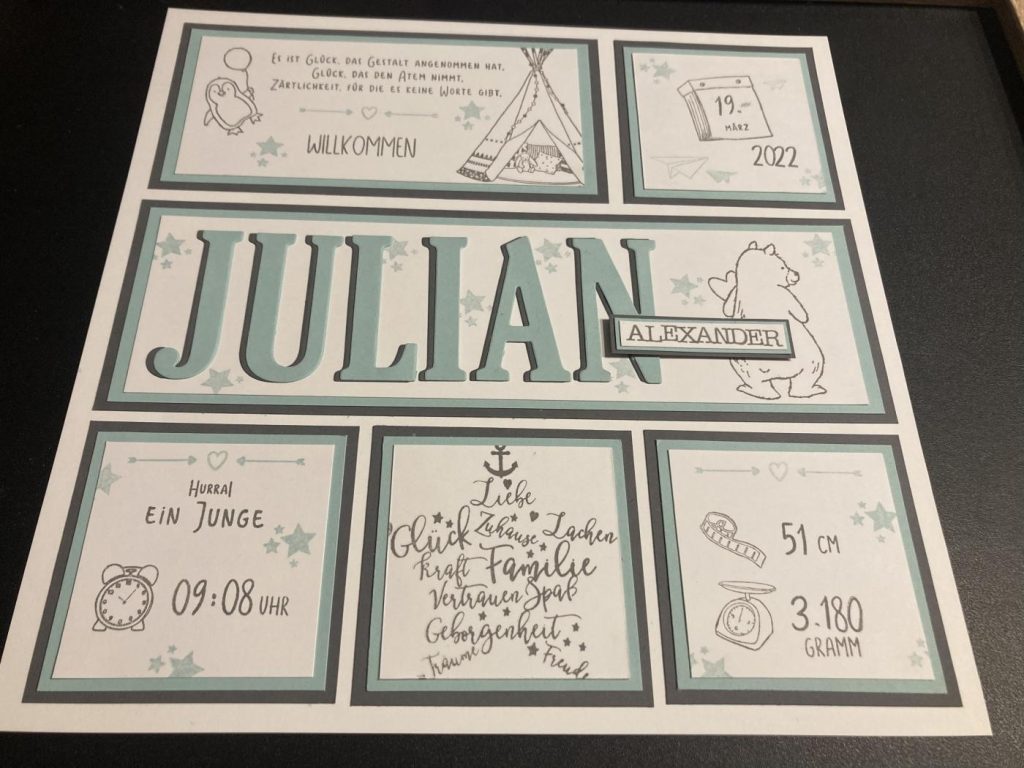 Es ist Glück, das Gestalt angenommen hat,
Glück, das den Atem nimmt,
Zärtlichkeit, für die es keine Worte gibt.
WILLKOMMEN
19.
MÄRZ
2022
JULIAN
ALEXANDER
HURRA!
EIN JUNGE
09:08 UHR
Liebe
Glück Zuhause Lachen
Kraft Familie
Vertrauen Spaß
Geborgenheit
Träume Freude
51 CM
3.180
GRAMM